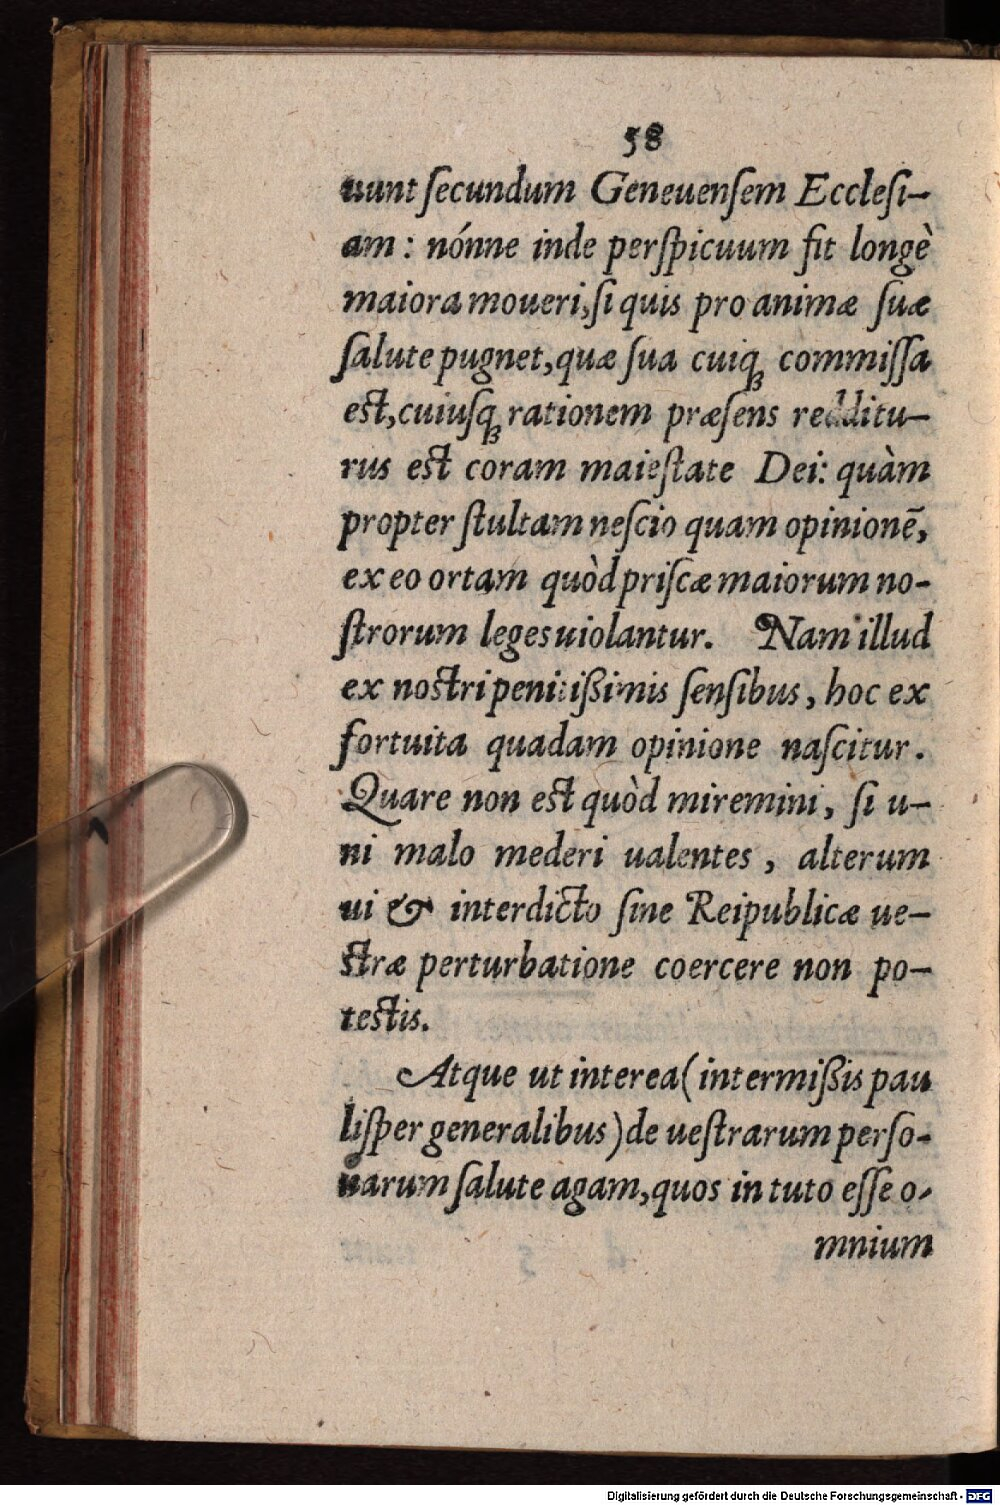 58
uunt ſecundum Geneuenſem Eccleſi-
am: nónne inde perſpicuum fit longè
maiora moueri, ſi quis pro animæ ſuæ
ſalute pugnet, quæ ſua cuiq; commiſſa
est, cuiuſq; rationem præſens redditu-
rus est coram maieſtate Dei: quàm
propter ſtultam neſcio quam opinionē,
ex eo ortam quòd priſcæ maiorum no-
ſtrorum leges uiolantur. Nam illud
ex nostri penitißimis ſenſibus, hoc ex
fortuita quadam opinione naſcitur.
Quare non est quòd miremini, ſi u-
ni malo mederi ualentes, alterum
ui & interdicto ſine Reipublicæ ue-
stræ perturbatione coercere non po-
testis.
Atque ut interea (intermißis pau
liſper generalibus) de ueſtrarum perſo-
narum ſalute agam, quos in tuto eſſe o-
mnium
Digitalisierung gefördert durch die Deutsche Forschungsgemeinschaft - DFG